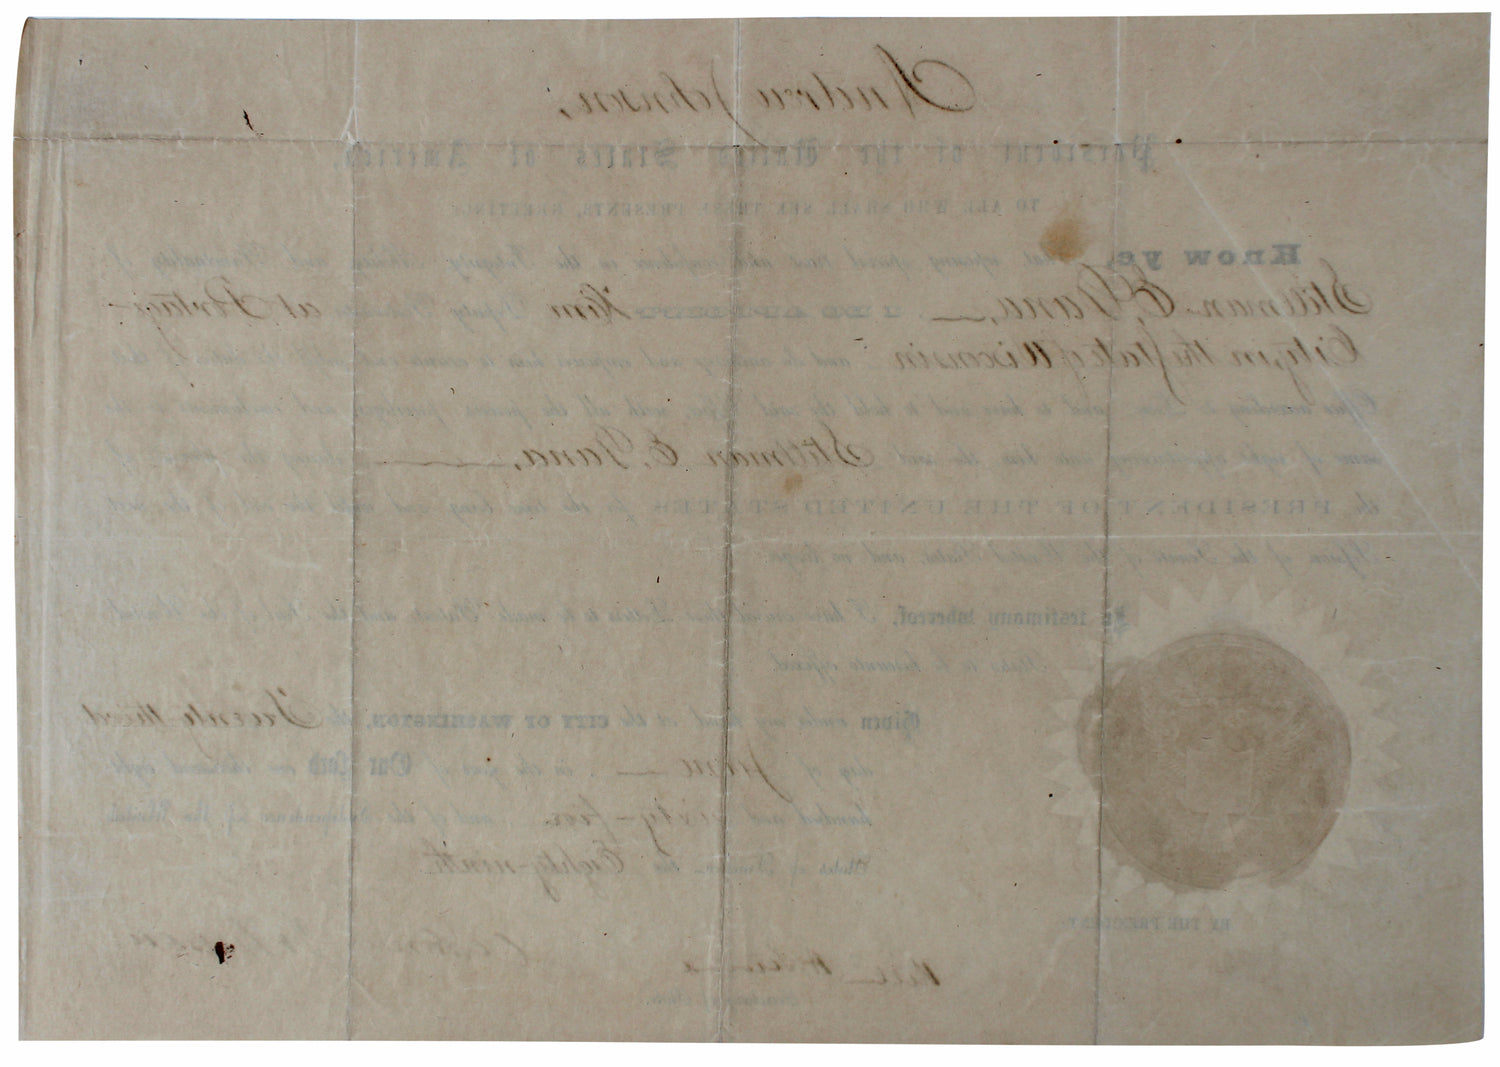 Andrew Johnson,
President of the United States of America,
TO ALL WHO SHALL SEE THESE PRESENTS, GREETING:
Know ye, That reposing special trust and confidence in the Integrity, and of
Stillman E. Dana, I DO APPOINT him Deputy at Portage
City, in the State of Wisconsin and do authorize and empower him to execute and the
Office according to Law, and to have and to hold the said Office, with all the powers, privileges, and emoluments to the
same of right appertaining unto him, the said Stillman E. Dana, during the of
the PRESIDENT OF THE UNITED STATES for the time being and until the end of the next
Session of the Senate of the United States, and no longer.
In testimony whereof, I have caused these Letters to be made Patent and the Seal of the United
States to be hereunto affixed.
Given under my hand at the CITY OF WASHINGTON, the Twenty third
day of June in the year of Our Lord one thousand eight
hundred and sixty-five and of the Independence of the United
States of America the Eighty-ninth.
BY THE PRESIDENT
Andrew Johnson